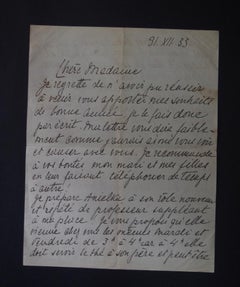 31. XII. 33
Chère Madame
Je regrette de n'avoir pu réussir
à venir vous apporter mes souhaits
de bonne année je le fais donc
par écrit. Ma lettre vous dira faible-
ment comme j'aurais aimé vous voir
et causer avec vous. Je recommande
à vos bontés mon mari et mes filles
en leur faisant téléphoner de temps
à autre.
Je prépare Anielka à son rôle nouveau
et rapide de professeur suppléant
à ma place. Je vous propose qu'elle
vienne chez vous les mardi et
vendredi de 3h à 4h car à 4h elle
doit servir le thé à son père et peut être